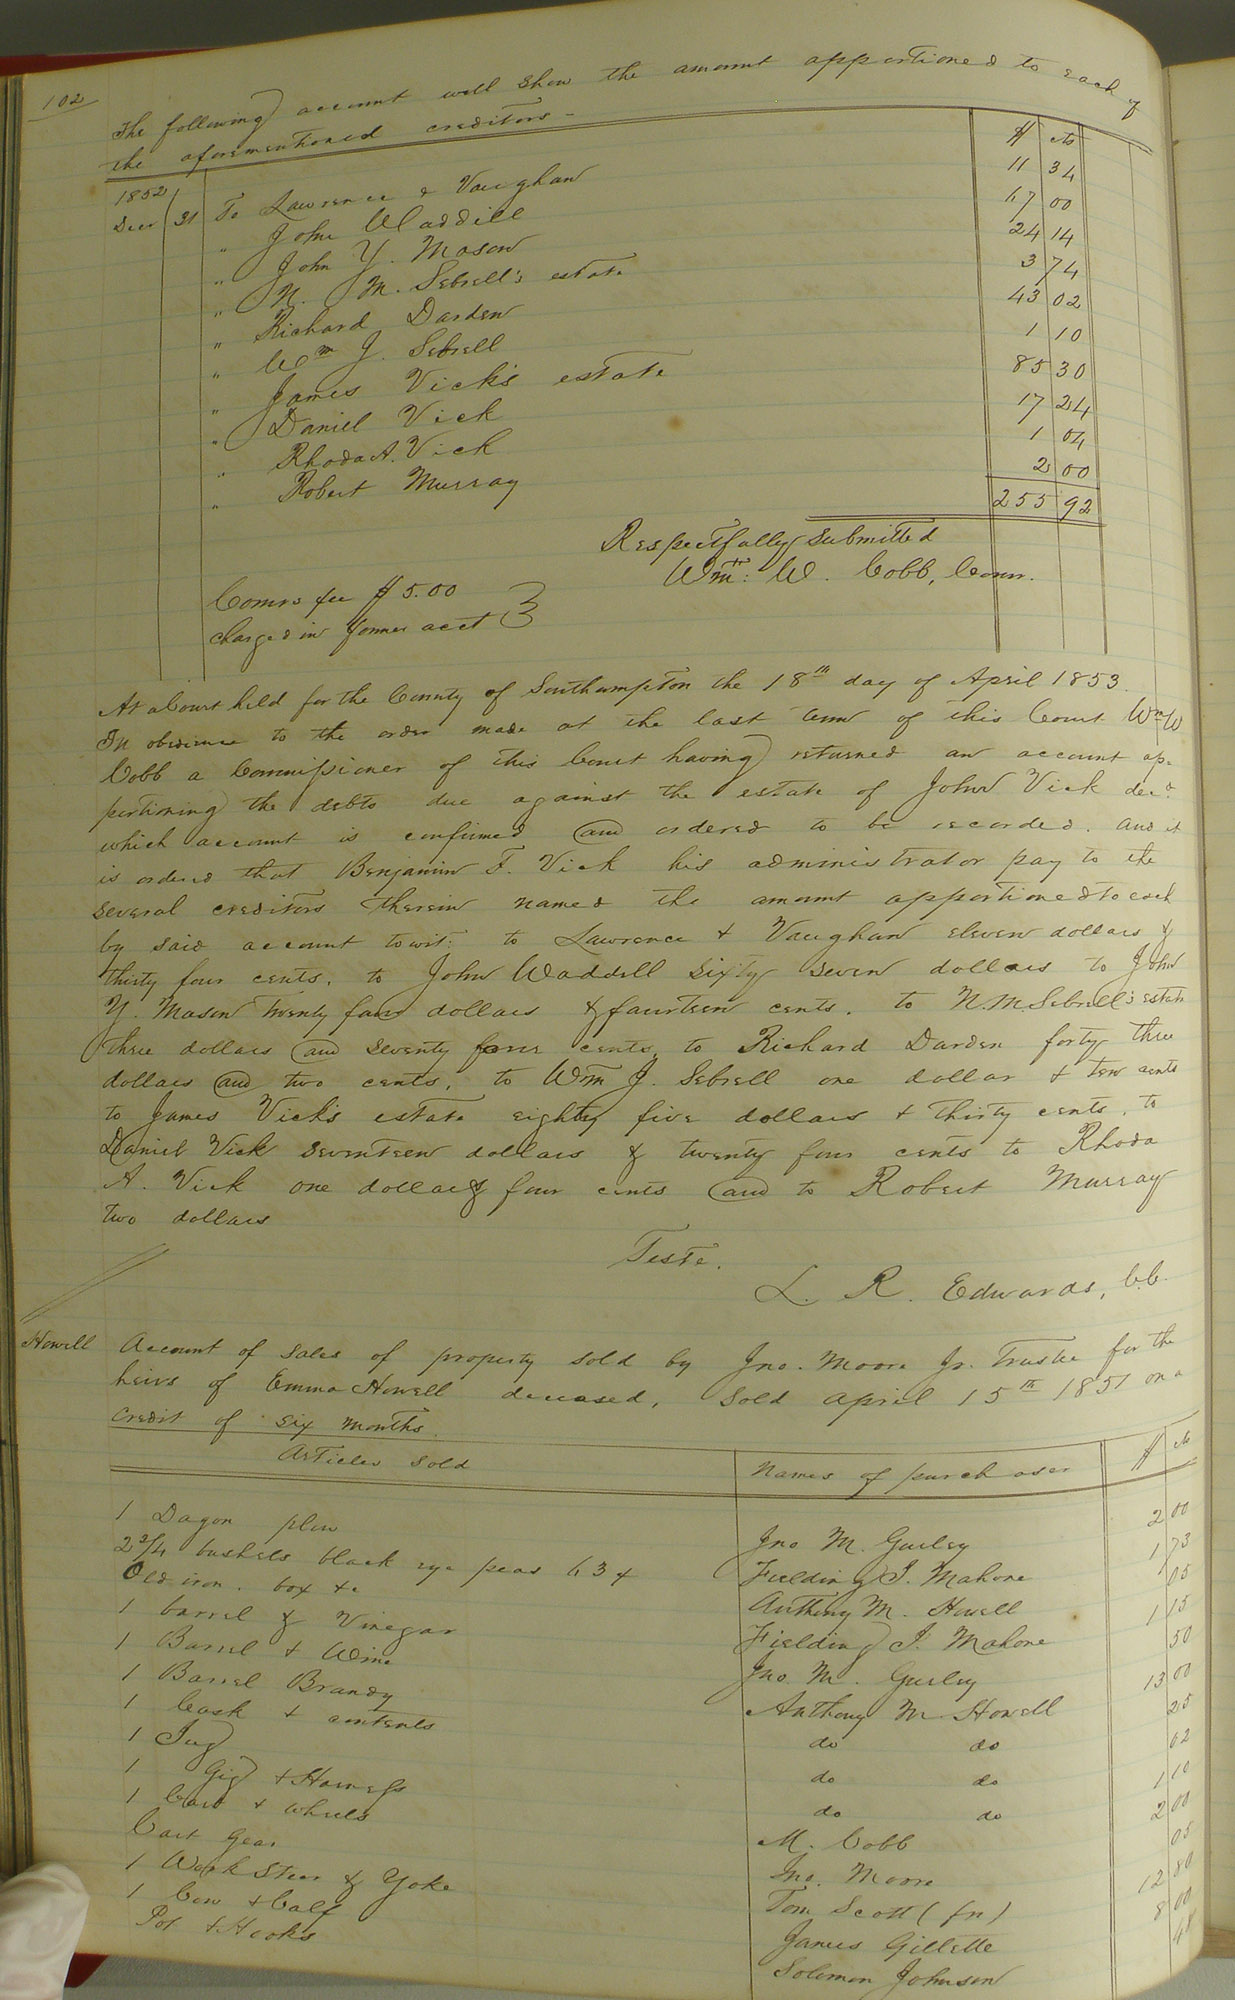 102
The following account will show the amount apportioned to each of
the aforementioned creditors -
$ cts
1852 Decr 31 To Lawrence & Vaughan 11 34
" John Waddill 67 00
" John Y. Mason 24 14
" N. M. Sebrell's estate 3 74
" Richard Darden 43 02
" Wm J. Sebrell 1 10
" James Vick's estate 85 30
" Daniel Vick 17 24
" Rhoda A. Vick 1 04
" Robert Murray 2 00
255 92
Respectfully submitted
Wm: W. Cobb, Comr.
Comrs fee $5.00
charged in former acct
At a Court held for the County of Southampton the 18th day of April 1853.
In obedience to the order made at the last term of this Court Wm W
Cobb a Commissioner of this Court having returned an account ap-
portioning the debts due against the estate of John Vick decd.
which account is confirmed and ordered to be recorded. And it
is ordered that Benjamin F. Vick his administrator pay to the
several creditors therein named the amount apportioned to each
by said account towit: to Lawrence & Vaughan eleven dollars &
thirty four cents, to John Waddill sixty seven dollars to John
Y. Mason twenty four dollars & fourteen cents, to N. M. Sebrell's estate
three dollars and seventy four cents, to Richard Darden forty three
dollars and two cents, to Wm J. Sebrell one dollar & ten cents
to James Vick's estate eighty five dollars & thirty cents, to
Daniel Vick seventeen dollars & twenty four cents to Rhoda
A. Vick one dollar & four cents and to Robert Murray
two dollars
Teste.
L. R. Edwards, C.C.
Howell Account of sales of property sold by Jno. Moore Jr. Trustee for the
heirs of Emma Howell deceased, sold april 15th 1851 on a
credit of six months.
Articles sold Names of purchaser $ cts
1 Dagon plow Jno M. Gurley 2 00
2 3/4 bushels black eye peas 63 Fielding J. Mahone 1 73
Old iron. box &c Anthony M. Howell 05
1 barrel & Vinegar Fielding J. Mahone 1 15
1 Barrel & Wine Jno. M. Gurley 50
1 Barrel Brandy Anthony M. Howell 13 00
1 Cask & contents do do 25
1 Jug do do 02
1 Gig & Harness do do 1 10
1 Cart & wheels M. Cobb 2 00
Cart Gear Jno. Moore 05
1 Work Steer & Yoke Tom Scott (fn) 12 80
1 Cow & Calf James Gillette 8 00
Pot & Hooks Solomon Johnson